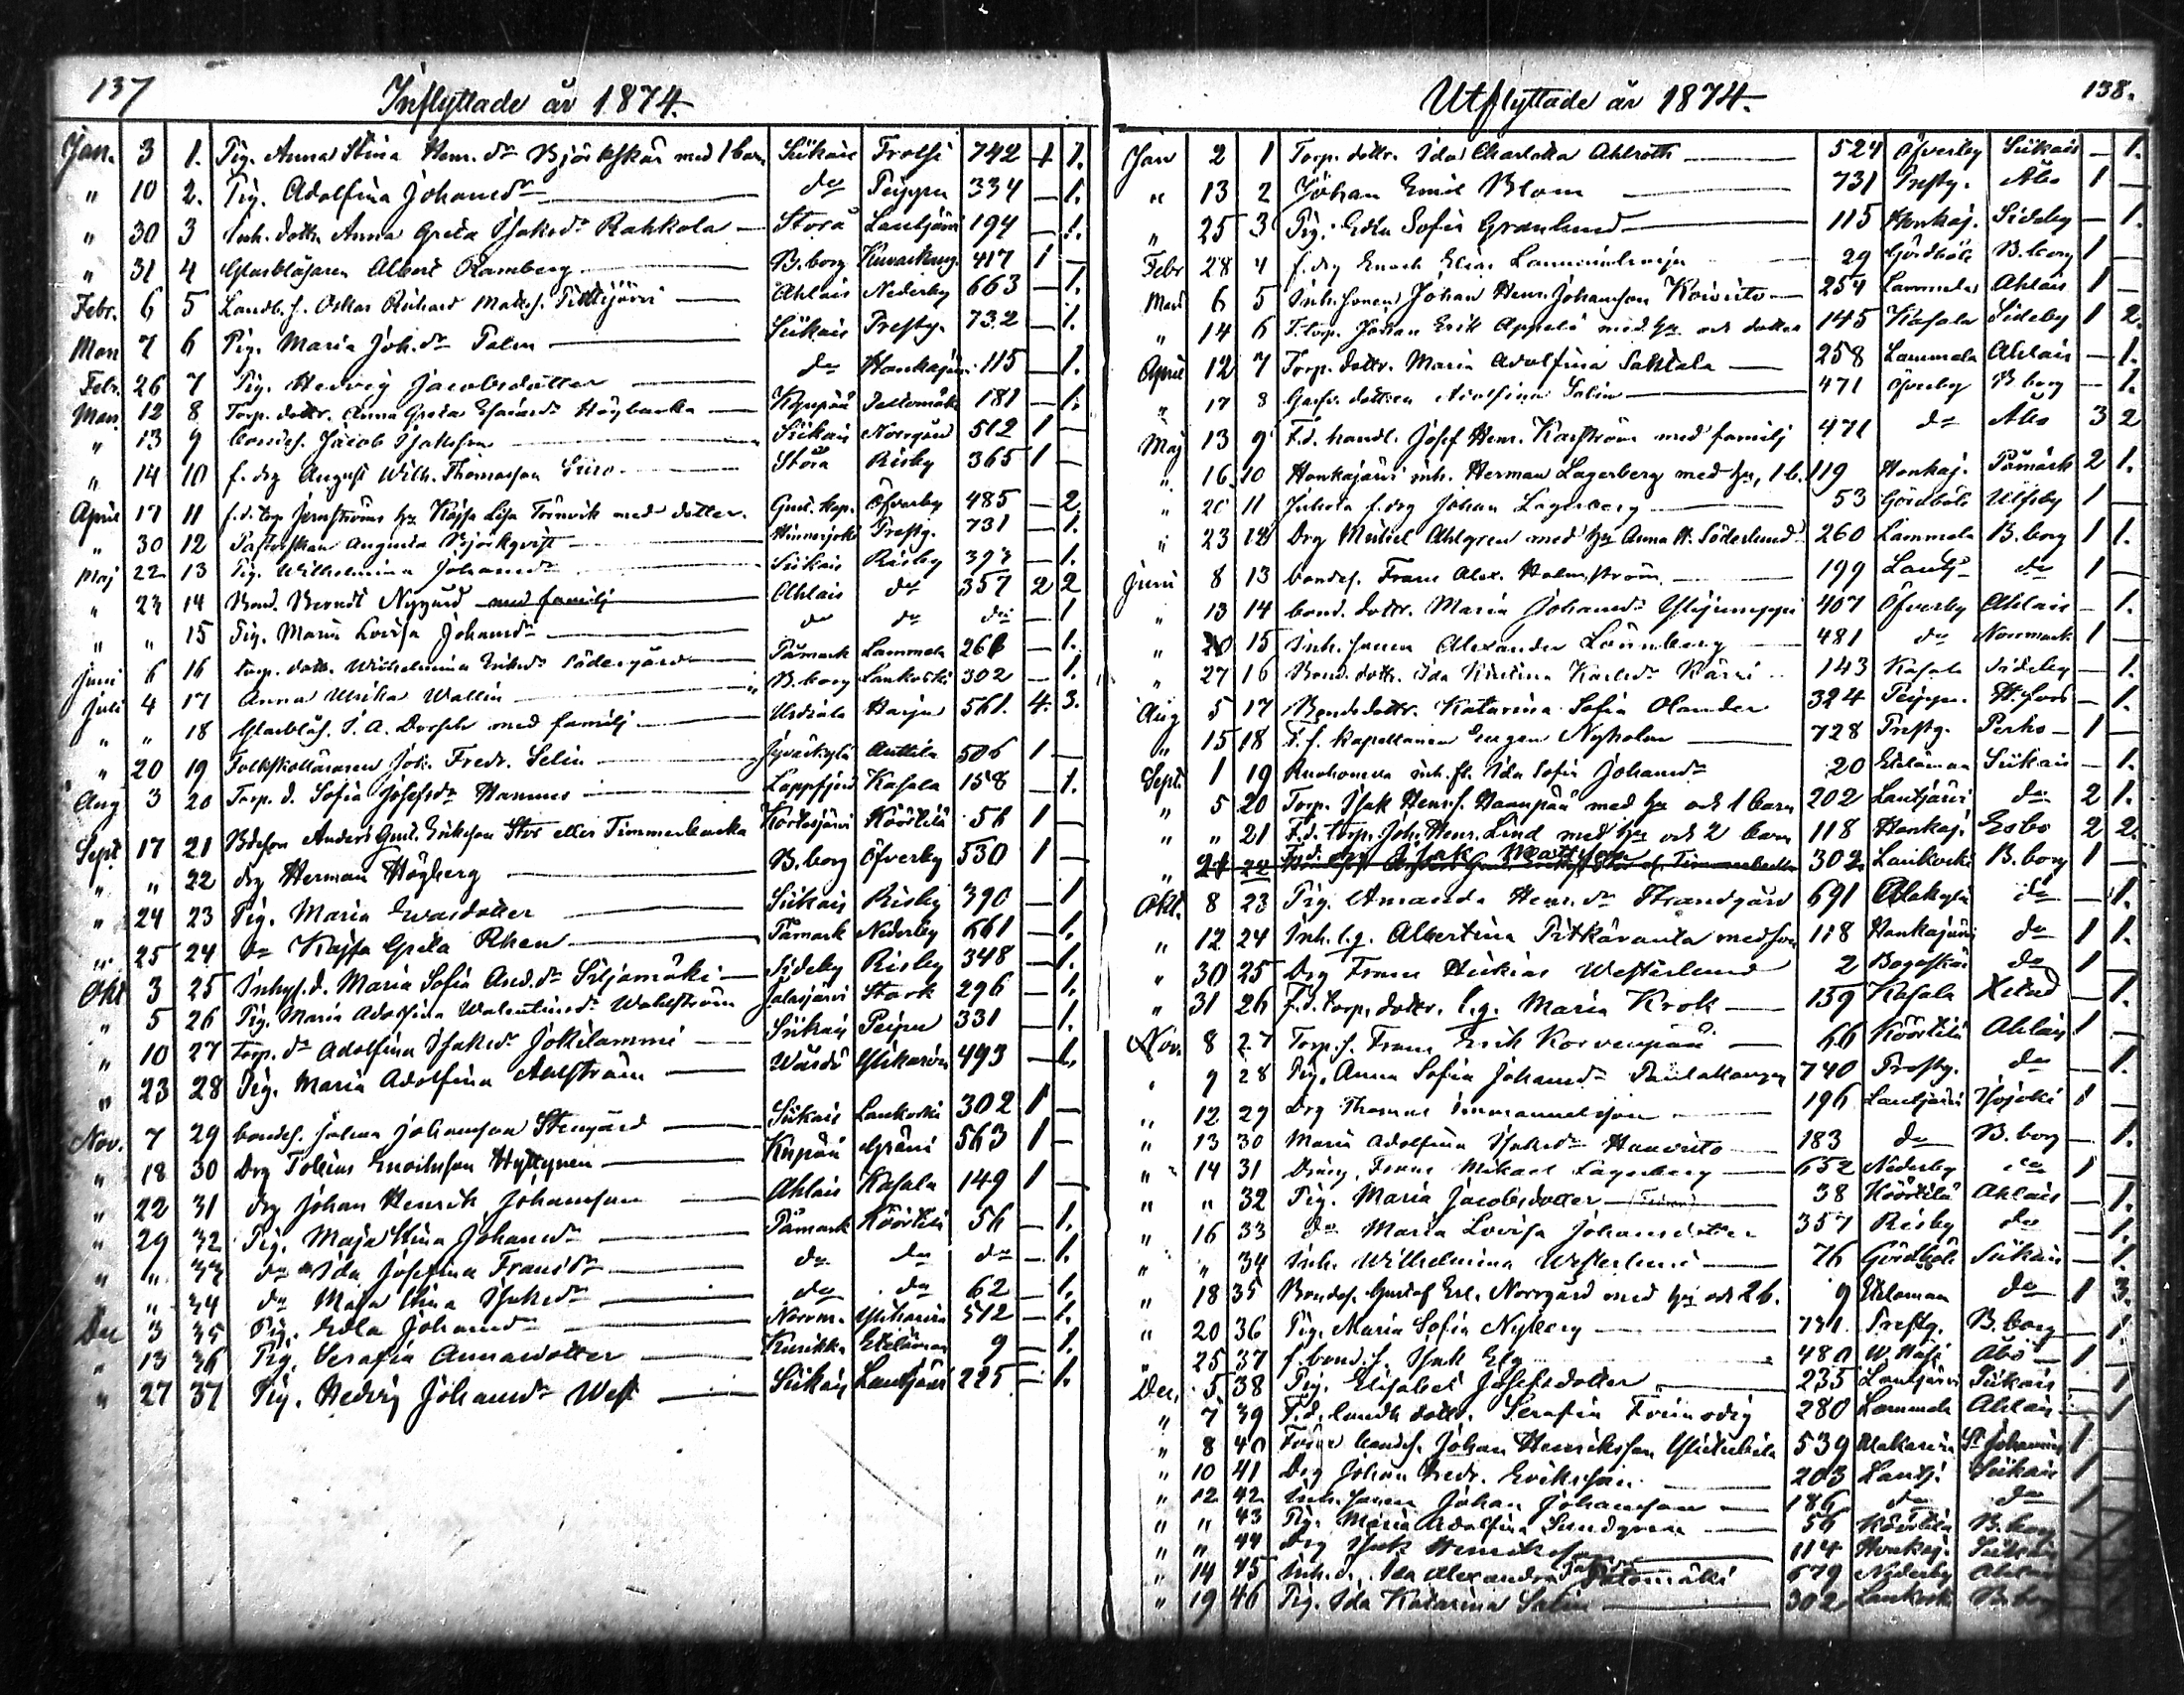 137
Inflyttade år 1874.
Jan. 3 1. Pig. Anna Stina Henr. dr Björkskär med 1 barn Siikais Trolsi 742 1 1.
" 10 2. Pig. Adolfina Johansdr do Peippu 334 — 1.
" 30 3 Inh. dottr. Anna Greta Isaksdr Rahkola Storå Lautjärvi 194 — 1.
" 31 4 Glasblåsaren Albert Ramberg B.borg 417 1 —
Febr. 6 5 Landb. s. Oskar Richard Matts. Ahlais Nederby 663 — 1.
Mars 7 6 Pig. Maria Joh. dr Palm Siikais Prestg. 732 — 1.
Febr. 26 7 Pig. Hedvig Jacobsdotter do Honkajärvi 115 — 1.
Mars 12 8 Torp. dottr. Anna Greta Högbacka 181 — 1.
" 13 9 bondes. Jacob Isaksson Siikais Norrgård 512 1 —
" 14 10 f. drg August Wilh. Thomasson Storå Risby 365 1 —
April 17 11 f.d. torp. hu Kajsa Lisa Törnvik med dotter. Öfverby 485 — 2
" 30 12 Augusta Björkqvist Prestg. 731 — 1.
Maj 22 13 Pig. Wilhelmina Johansdr Siikais Risby 393 — 1.
" 23 14 Bond. Berndt Nygård med familj Ahlais do 357 2 2
" " 15 Pig. Maria Lovisa Johansdr do do do — 1
Juni 6 16 torp. dottr. Wilhelmina Eriksdr Södergård Påmark Lammela 266 — 1.
Juli 4 17 Anna Ulrika Wallin B.borg Lankoski 302 — 1.
" " 18 Glasblås. J. A. med familj Urdiala Harju 561. 4. 3.
" 20 19 Folkskolläraren Joh. Fredr. Selin Jyväskylä Anttila 506 1 —
Aug 3 20 Torp. d. Sofia Josefsdr Hannus Lappfjärd Kasala 158 — 1.
Sept 17 21 Bdeson Anders Gust. Eriksson Stor eller Timmerbacka Kortesjärvi Köörtilä 56 1 —
" " 22 drg Herman Högberg B.borg Öfverby 530 1 —
" 24 23 Pig. Maria Evasdotter Siikais Risby 390 — 1
" 25 24 do Kajsa Greta Rhen Påmark Nederby 661 — 1.
Okt 3 25 Inhys. d. Maria Sofia And. dr Siljamäki Sideby Risby 348 — 1.
" 5 26 Pig. Maria Adolfina Walentinsdr Wahlström Jalasjärvi Stark 296 — 1.
" 10 27 Torp. dr Adolfina Isaksdr Jokilammi Siikais Peipu 331 — 1.
" 23 28 Pig. Maria Adolfina Ahlström 493 — 1.
Nov. 7 29 bondes. Johan Johansson Stengård Siikais Lankoski 302 1 —
" 18 30 Drg Tobias Enoksson Hyttynen 563 1 —
" 22 31 drg Johan Henrik Johansson Ahlais Kasala 149 1 —
" 29 32 Pig. Maja Stina Johansdr Påmark Köörtilä 56 — 1.
" " 33 do Ida Josefina Fransdr do do do — 1.
" " 34 do Maja Stina Isaksdr do do 62 — 1.
Dec 3 35 Pig. Edla Johansdr Norrm. 512 — 1.
" 13 36 Pig. Serafia Annasdotter Kurikka Etelämaa 9 — 1.
" 27 37 Pig. Hedvig Johansdr West Siikais Lautjärvi 225 — 1.
138.
Utflyttade år 1874.
Jan 2 1 Torp. dottr. Ida Charlotta Ahlroth 524 Öfverby Siikais — 1.
" 13 2 Johan Emil Blom 731 Prestg. Åbo 1 —
" 25 3 Pig. Edla Sofia Granlund 115 Honkaj. Sideby — 1.
Febr 28 4 f. drg Enoch Elias 29 Gördböle B.borg 1
Mars 6 5 Inh. sonen Johan Henr. Johansson Koivisto 254 Lammela Ahlais 1 —
" 14 6 F. torp. Johan Erik Appelö med hu och dotter 145 Kasala Sideby 1 2.
April 12 7 Torp. dottr. Maria Adolfina Santala 258 Lammela Ahlais — 1.
" 17 8 dottren Adolfina Salin 471 Öfverby B.borg — 1.
Maj 13 9 F.d. handl. Josef Henr. Karström med familj 471 do Åbo 3 2
" 16 10 Honkajärvi inh. Herman Lagerberg med hu, 1 b. 119 Honkaj. Påmark 2 1.
" 20 11 f. drg Johan Lagerberg 53 Gördböle Ulfsby 1 —
" 23 12 Drg Mikael Ahlgren med hu Anna H. Söderlund 260 Lammela B.borg 1 1.
Juni 8 13 bondes. Frans Alex. Holmström 199 Lautj. do 1 —
" 13 14 bond. dottr. Maria Johansdr 407 Öfverby Ahlais — 1.
" 20 15 Inh. sonen Alexander Lönnberg 481 do Norrmark 1 —
" 27 16 Bond. dottr. Ida Kristina Karlsdr Kärri 143 Kasala Sideby — 1.
Aug 5 17 Bondedottr. Katarina Sofia Olander 324 Peippu H.fors — 1.
" 15 18 F. f. kapellanen Eugen Nyholm 728 Prestg. Perho 1 —
Sept. 1 19 inh. fl. Ida Sofia Johansdr 20 Etelämaa Siikais — 1.
" 5 20 Torp. Isak Henrs. Haanpää med hu och 1 barn 202 Lautjärvi do 2 1.
" " 21 F.d. torp. Joh. Henr. Lind med hu och 2 barn 118 Honkaj. Esbo 2 2.
" 21 22 F.d. drg Isak Mattsson 302 Lankoski B.borg 1 —
Okt. 8 23 Pig. Amanda Henr. dr Strandgård 691 Alakylä do — 1.
" 12 24 Inh. l.g. Albertina Pitkäranta med son 118 Honkajärvi do 1 1.
" 30 25 Drg Frans Hiskias Westerlund 2 do 1
" 31 26 F.d. torp. dottr. l.g. Maria Krok 159 Kasala — 1.
Nov. 8 27 Torp. s. Frans Erik Korvenpää 66 Köörtilä Ahlais 1 —
" 9 28 Pig. Anna Sofia Johansdr 740 Prestg. do — 1.
" 12 29 Drg Thomas Immanuelsson 196 Lautjärvi Hvjoki 1 —
" 13 30 Maria Adolfina Isaksdr Haavisto 183 do B.borg — 1.
" 14 31 Dräng Frans Mikael Lagerberg 652 Nederby do 1
" " 32 Pig. Maria Jacobsdotter 38 Köörtilä Ahlais — 1.
" 16 33 do Maria Lovisa Johansdotter 357 Risby do — 1.
" " 34 Inh. Wilhelmina Westerlund 76 Gördböle Siikais — 1.
" 18 35 Bondes. Gustaf Norrgård med hu och 2 b. 9 Etelämaa do 1 3.
" 20 36 Pig. Maria Sofia Nyberg 731 Prestg. B.borg — 1.
" 25 37 f. bond. s. Isak 480 Åbo 1
Dec. 5 38 Pig. Elisabet Josefsdotter 235 Lautjärvi Siikais 1
" 7 39 F.d. landb. dottr. Serafia 280 Lammela Ahlais 1
" 8 40 bondes. Johan Henriksson 539 St Johannis 1
" 10 41 Drg Johan Fredr. Eriksson 203 Lautj. Siikais 1
" 12 42 Inh. sonen Johan Johansson 186 do do 1
" " 43 Pig. Maria Adolfina Sundgren 56 Köörtilä B.borg
" " 44 Drg Isak Henriksson 114 Honkaj. Siikais
" 14 45 Inh. d. Ida Alexandra 679 Nederby Ahlais
" 19 46 Pig. Ida Katarina Salin 302 Lankoski B.borg